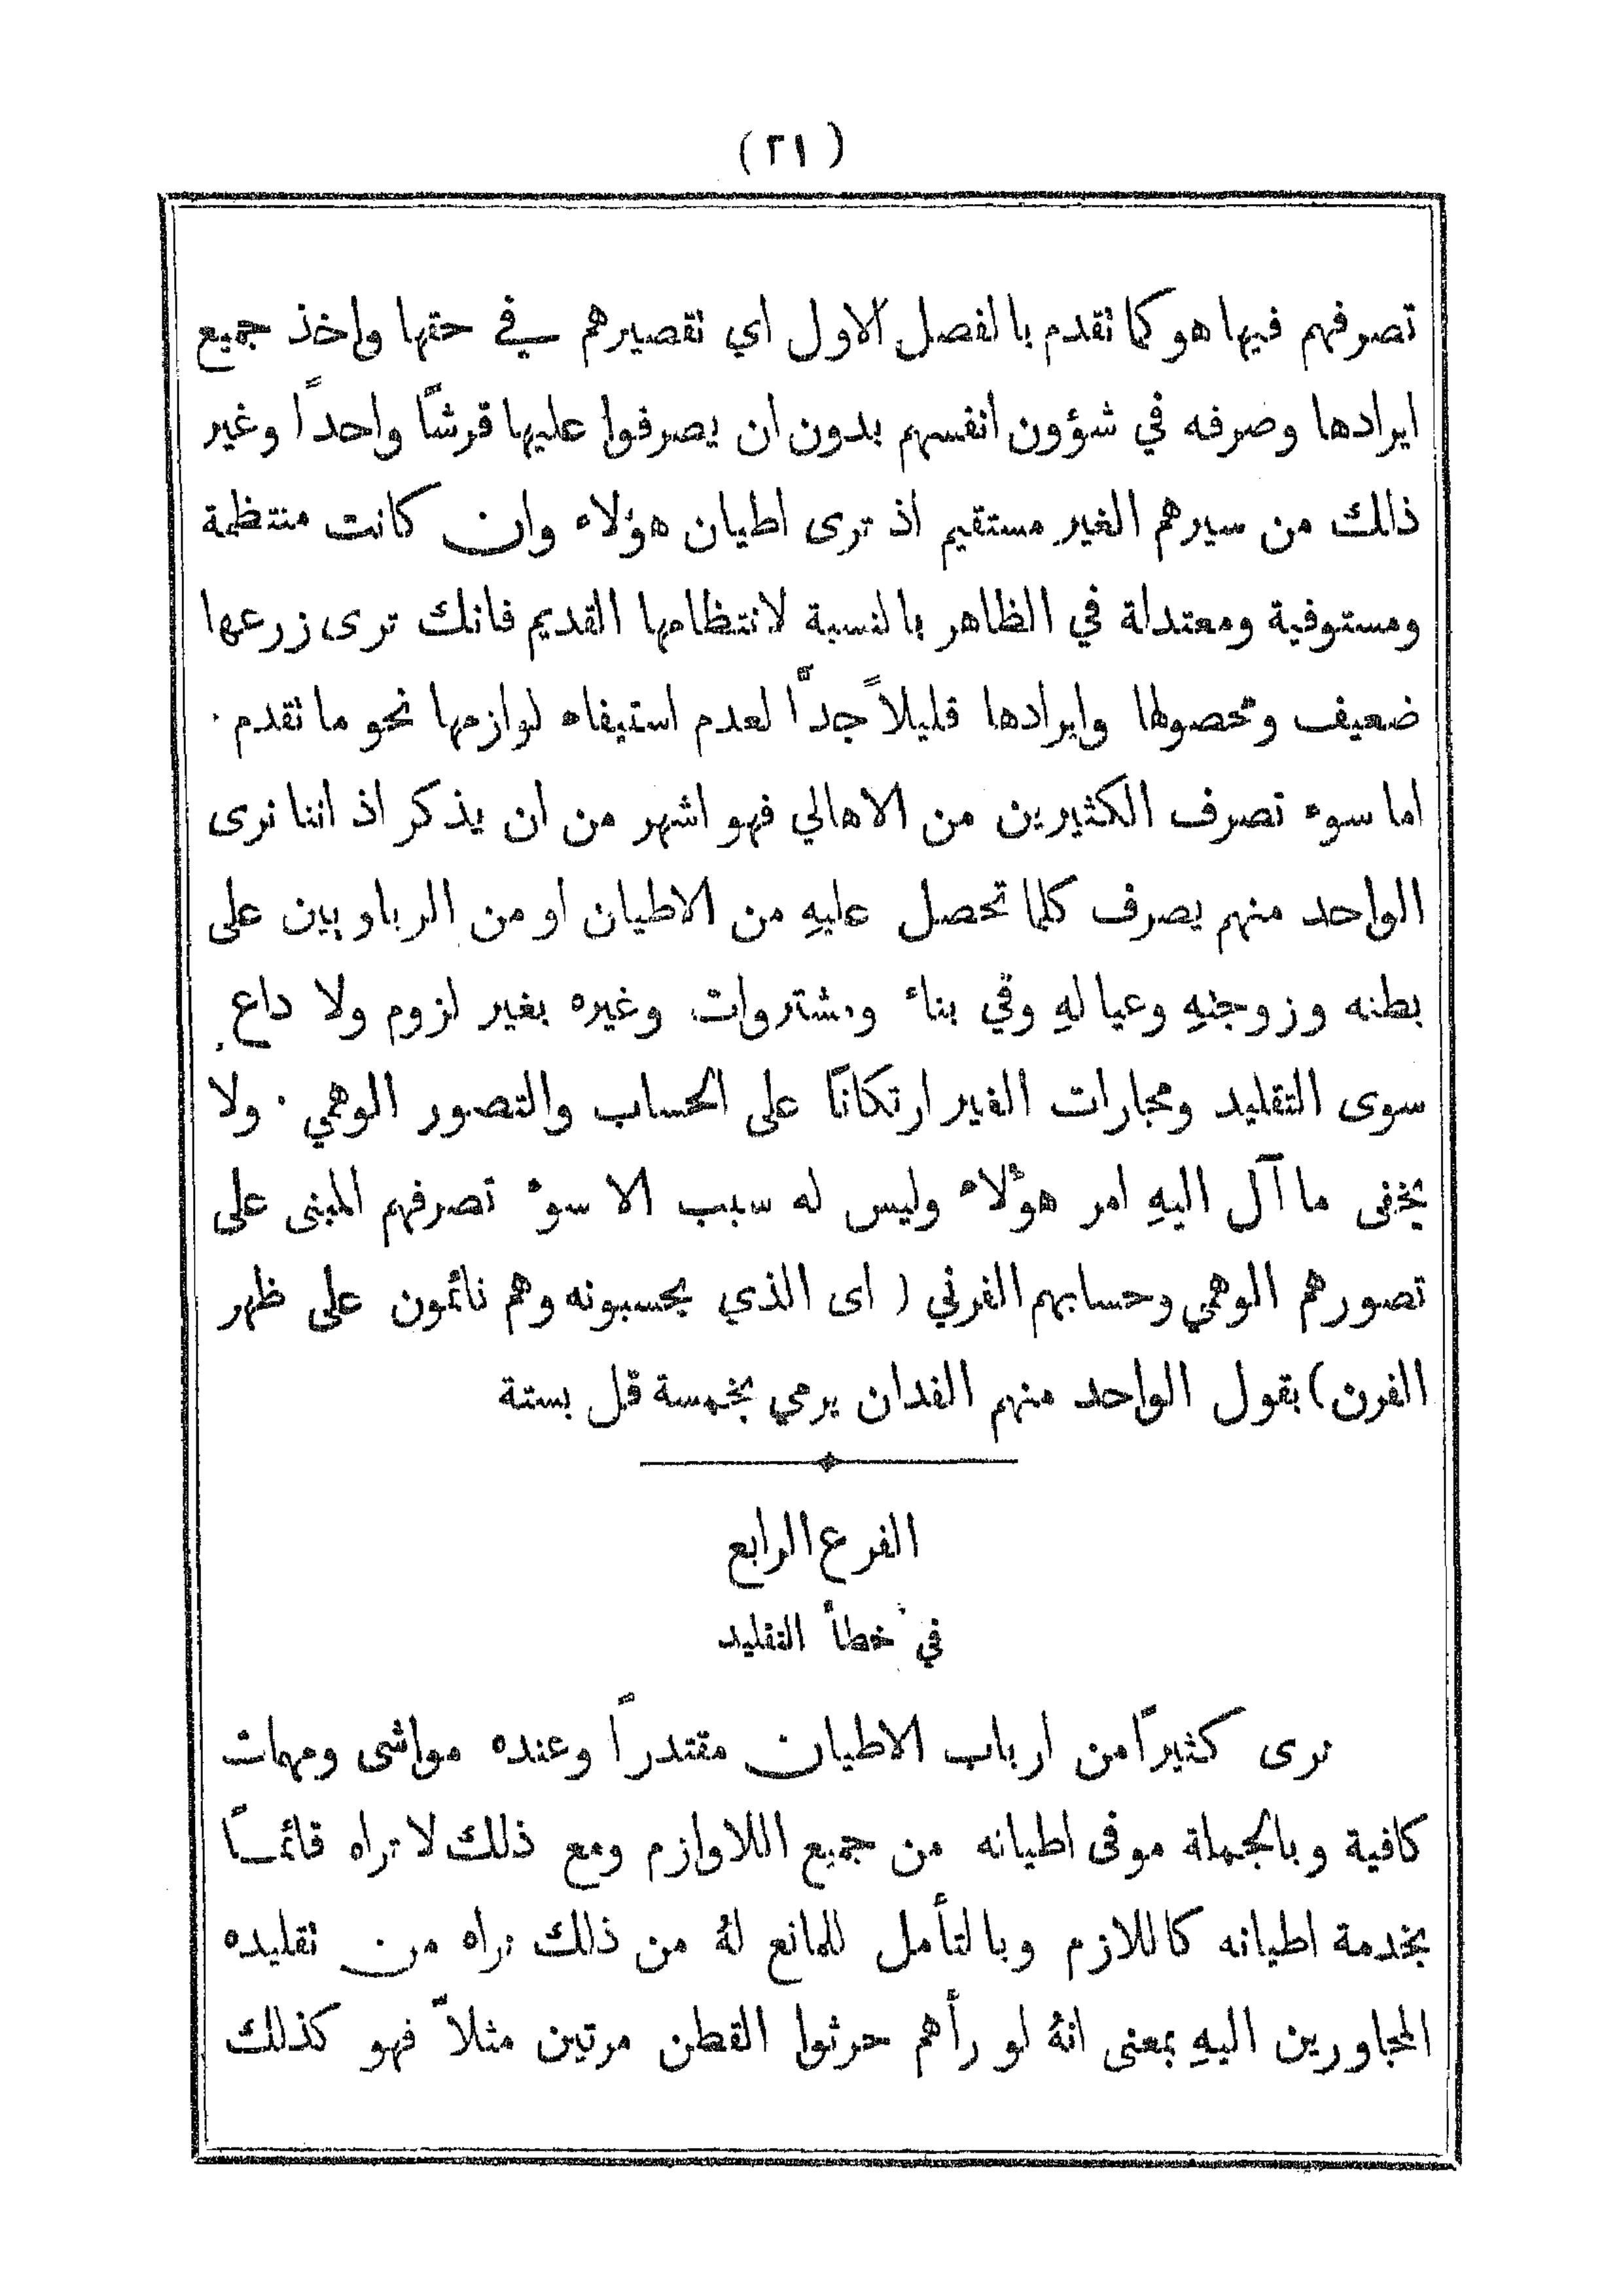 (٢١)
تصرفهم فيها هو كما تقدم بالفصل الاول اي تقصيرهم في حقها واخذ جميع
ايرادها وصرفه في شؤون انفسهم بدون ان يصرفوا عليها قرشًا واحدًا وغير
ذلك من سيرهم الغير مستقيم اذ ترى اطيان هؤلاء وان كانت منتظمة
ومستوفية ومعتدلة في الظاهر بالنسبة لانتظامها القديم فانك ترى زرعها
ضعيف ومحصولها وايرادها قليلاً جدًّا لعدم استيفاء لوازمها نحو ما تقدم ·
اما سوء تصرف الكثيرين من الاهالي فهو اشهر من ان يذكر اذ اننا نرى
الواحد منهم يصرف كلما تحصل عليهِ من الاطيان او من الرباويين على
بطنه وزوجتهِ وعيالهِ وفي بناء ومشتروات وغيره بغير لزوم ولا داعٍ
سوى التقليد ومجارات الغير ارتكانًا على الحساب والتصور الوهمي · ولا
يخفى ما آل اليهِ امر هؤلاء وليس له سبب الا سوء تصرفهم المبنى على
تصورهم الوهمي وحسابهم الفرني ( اى الذي يحسبونه وهم نائمون على ظهر
الفرن) بقول الواحد منهم الفدان يرمي بخمسة قل بستة
الفرع الرابع
في خطأ التقليد
نرى كثيرًا من ارباب الاطيان مقتدرًا وعنده مواشى ومهمات
كافية وبالجملة موفى اطيانه من جميع اللاوازم ومع ذلك لا تراه قائمًا
بخدمة اطيانه كاللازم وبالتأمل للمانع لهُ من ذلك نراه من تقليده
المجاورين اليهِ بمعنى انهُ لو رأهم حرثوا القطن مرتين مثلاً فهو كذلك